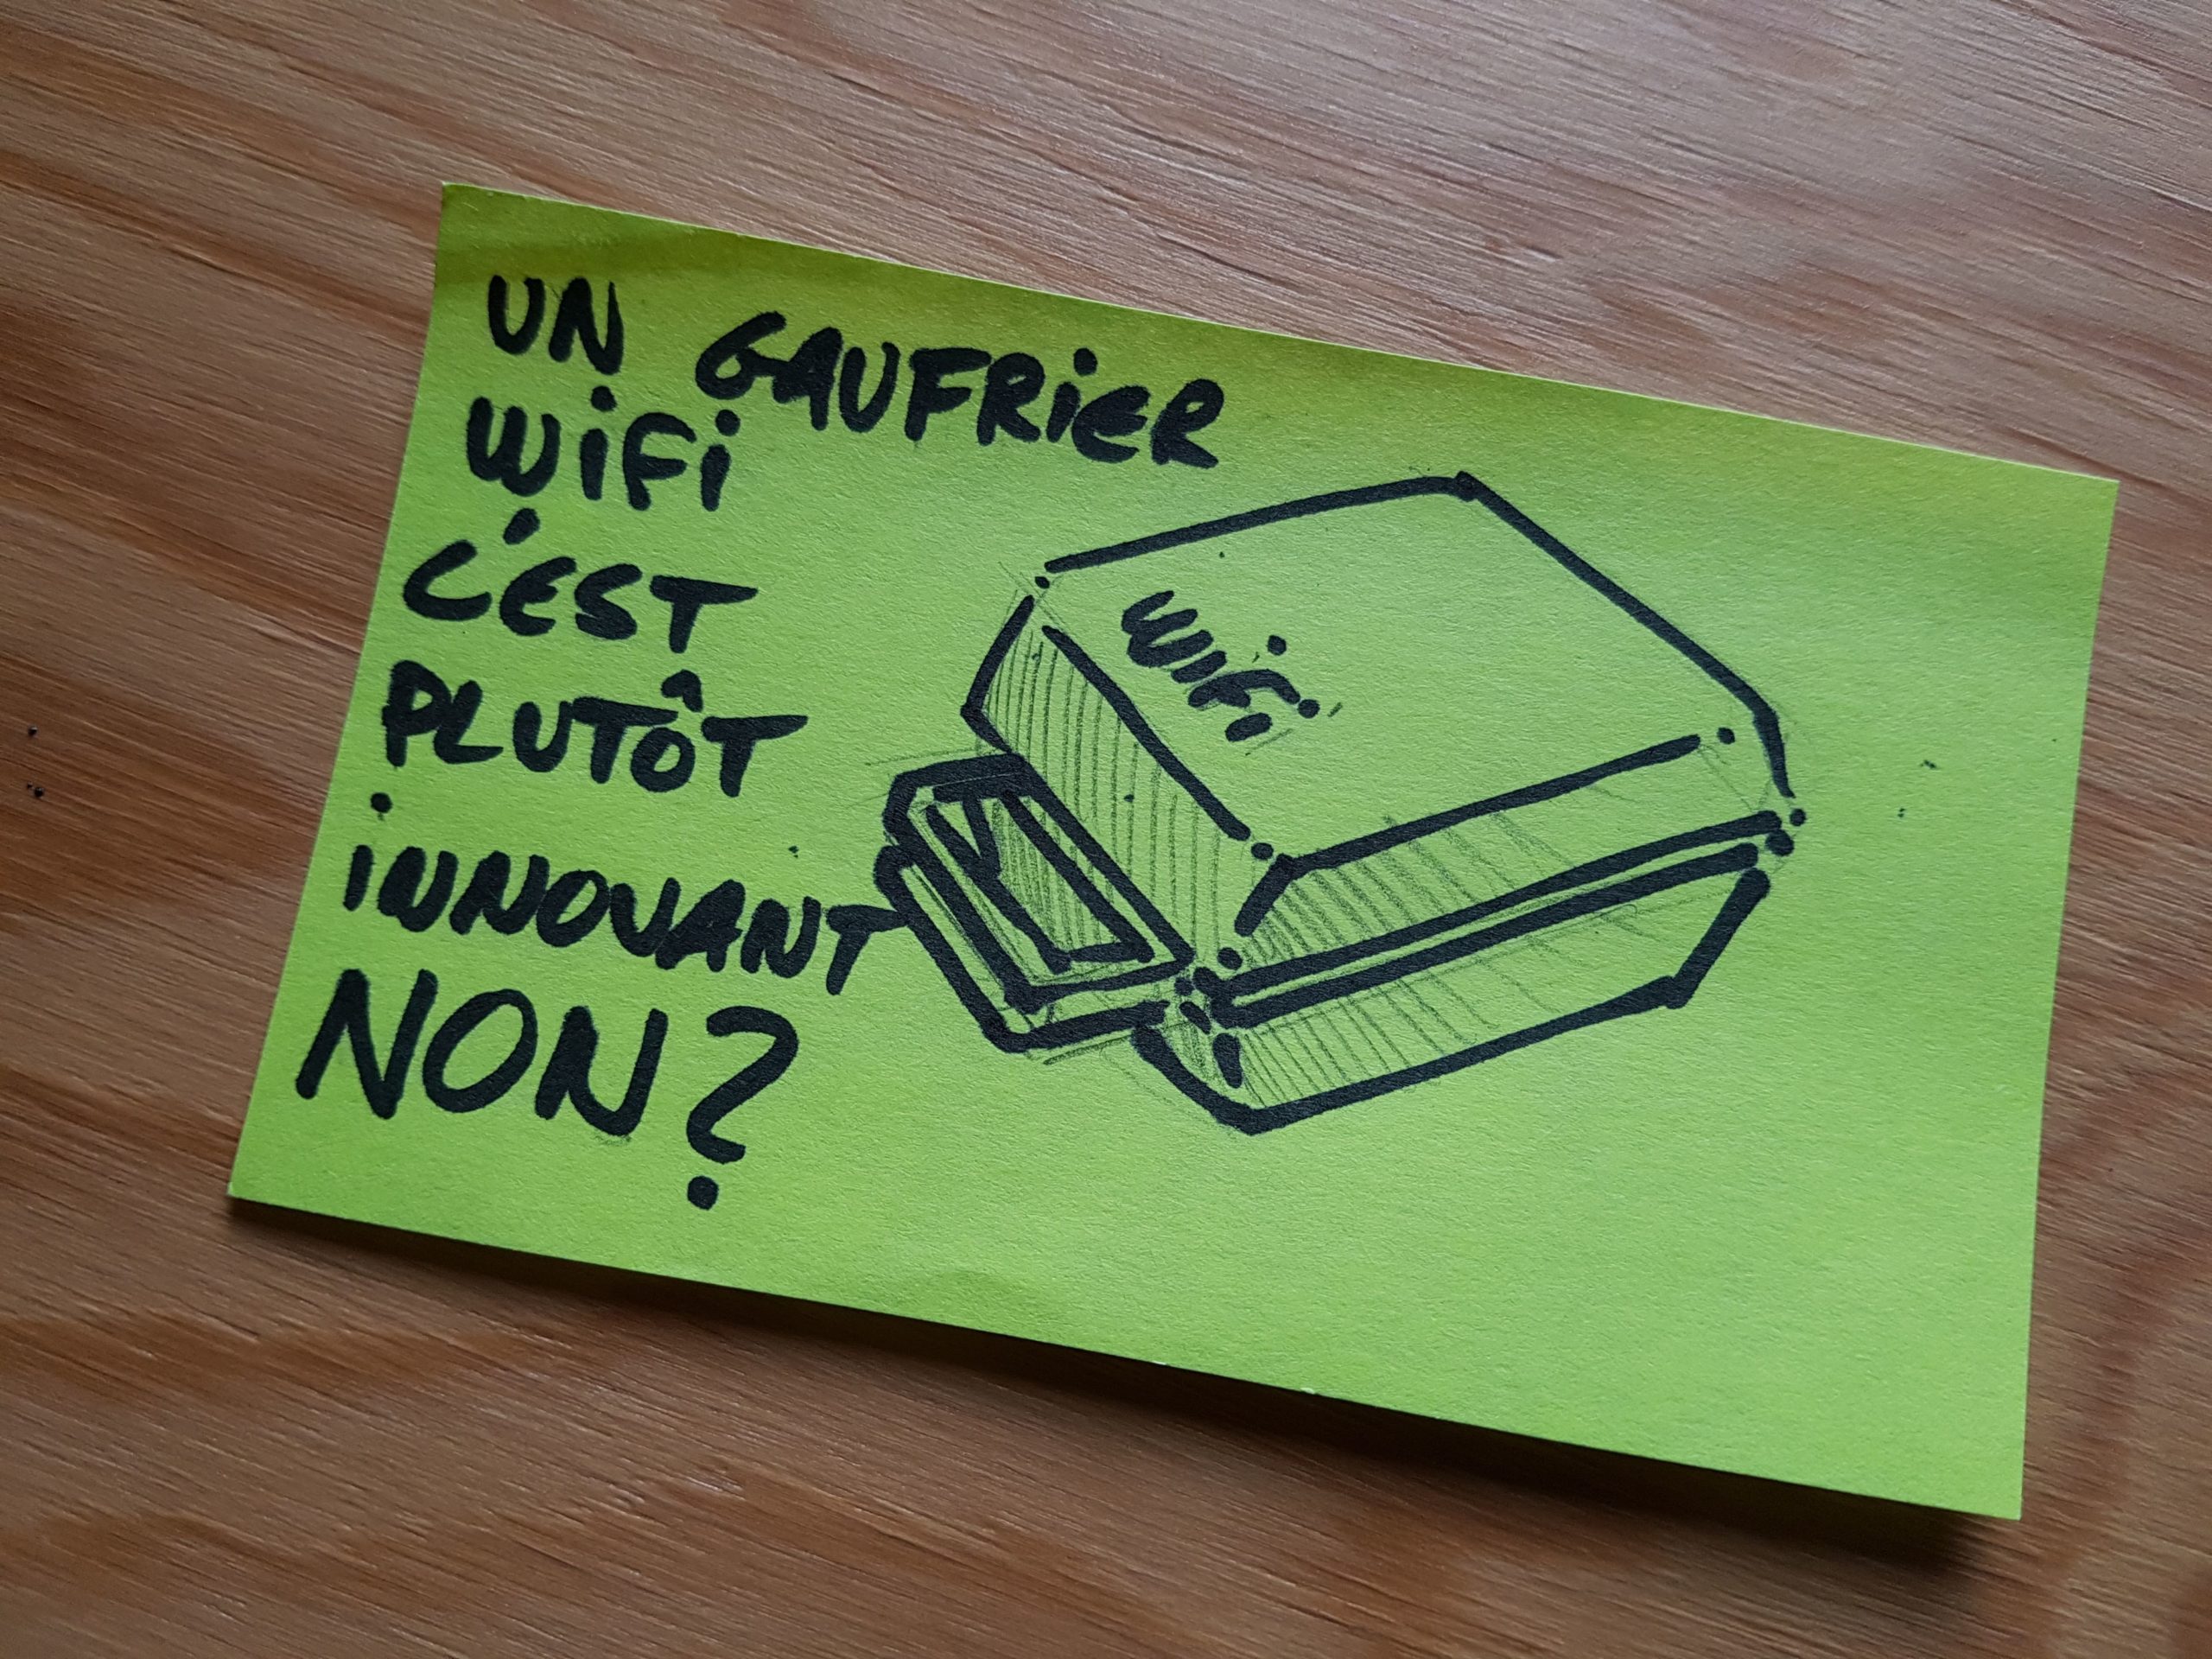 UN GAUFRIER
WiFi
C'EST
PLUTÔT
iNNOVANT
NON?
Wifi